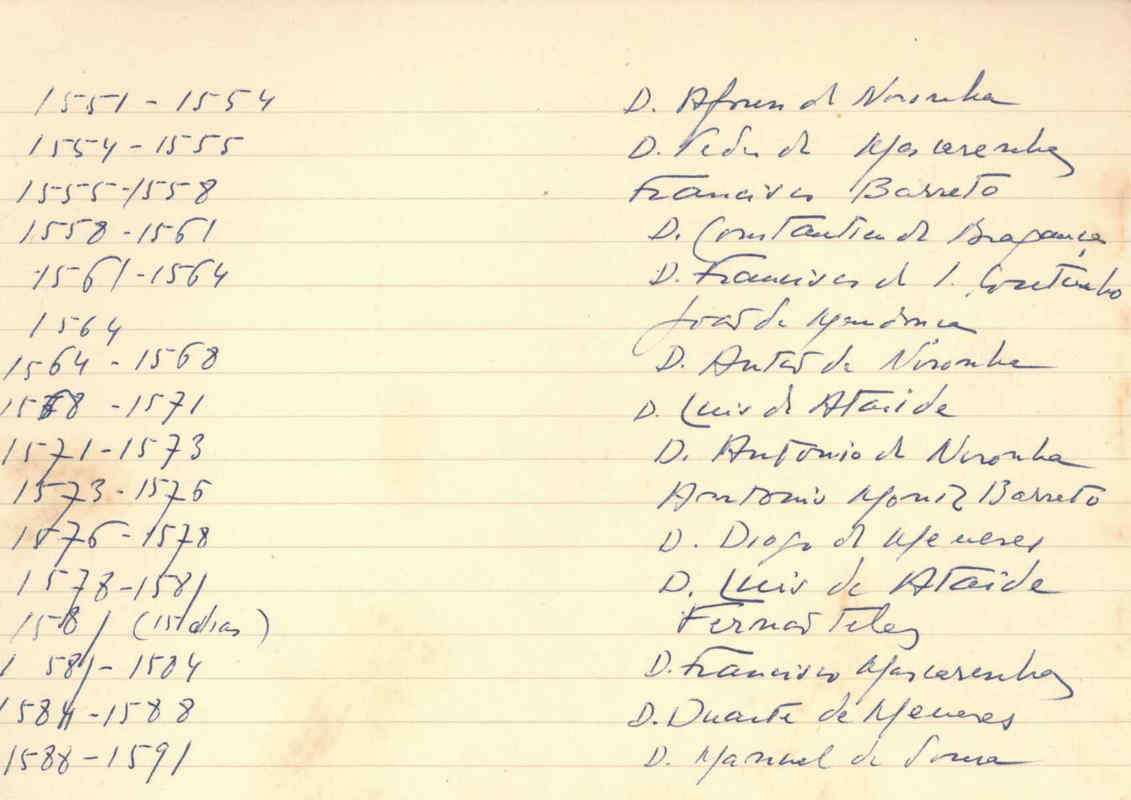 1551 - 1554 D. Afonso de Noronha
1554 - 1555 D. Pedro de Mascarenhas
1555 - 1558 Francisco Barreto
1558 - 1561 D. Constantino de Bragança
1561 - 1564 D. Francisco de S. Coutinho
1564 João de Mendonça
1564 - 1568 D. Antão de Noronha
1568 - 1571 D. Luis de Ataide
1571 - 1573 D. Antonio de Noronha
1573 - 1576 Antonio Moniz Barreto
1576 - 1578 D. Diogo de Meneses
1578 - 1581 D. Luis de Ataide
1581 (15 dias) Fernão Teles
1581 - 1584 D. Francisco Mascarenhas
1584 - 1588 D. Duarte de Meneses
1588 - 1591 D. Manuel de Sousa